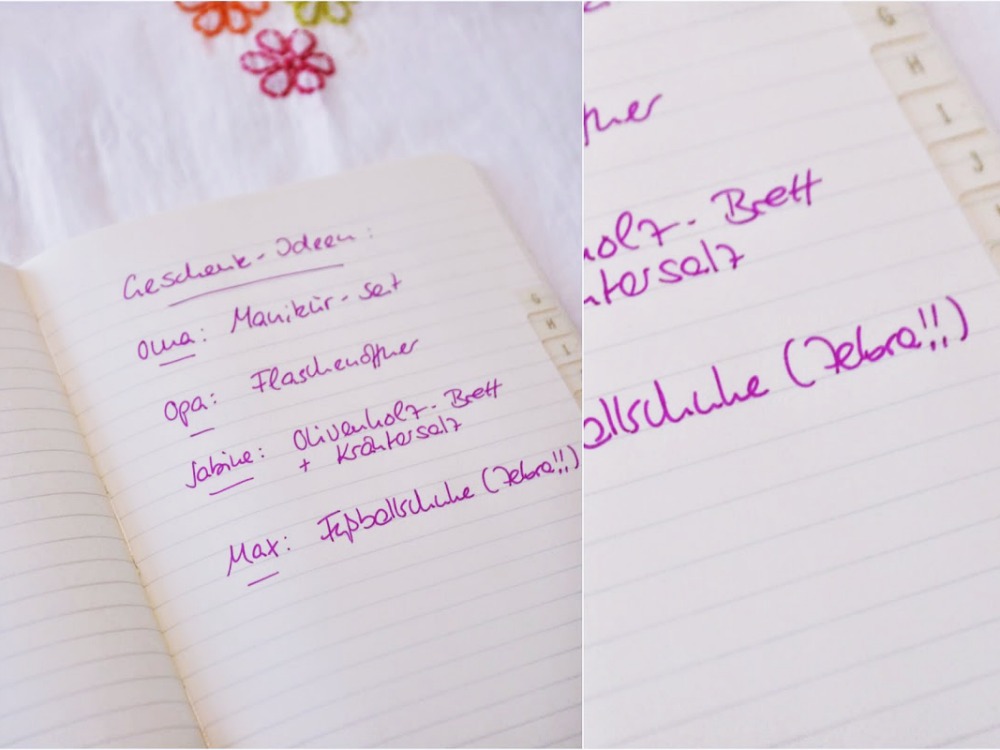 Geschenk-Ideen:
Oma: Manikür-Set
Opa: Flaschenöffner
Sabine: Olivenholz-Brett
+ Kräutersalz
Max: Fußballschuhe (Zebra!!)
G
H
I
G
H
I
J
ffner
holz-Brett
utersalz
allschuhe (Zebra!!)